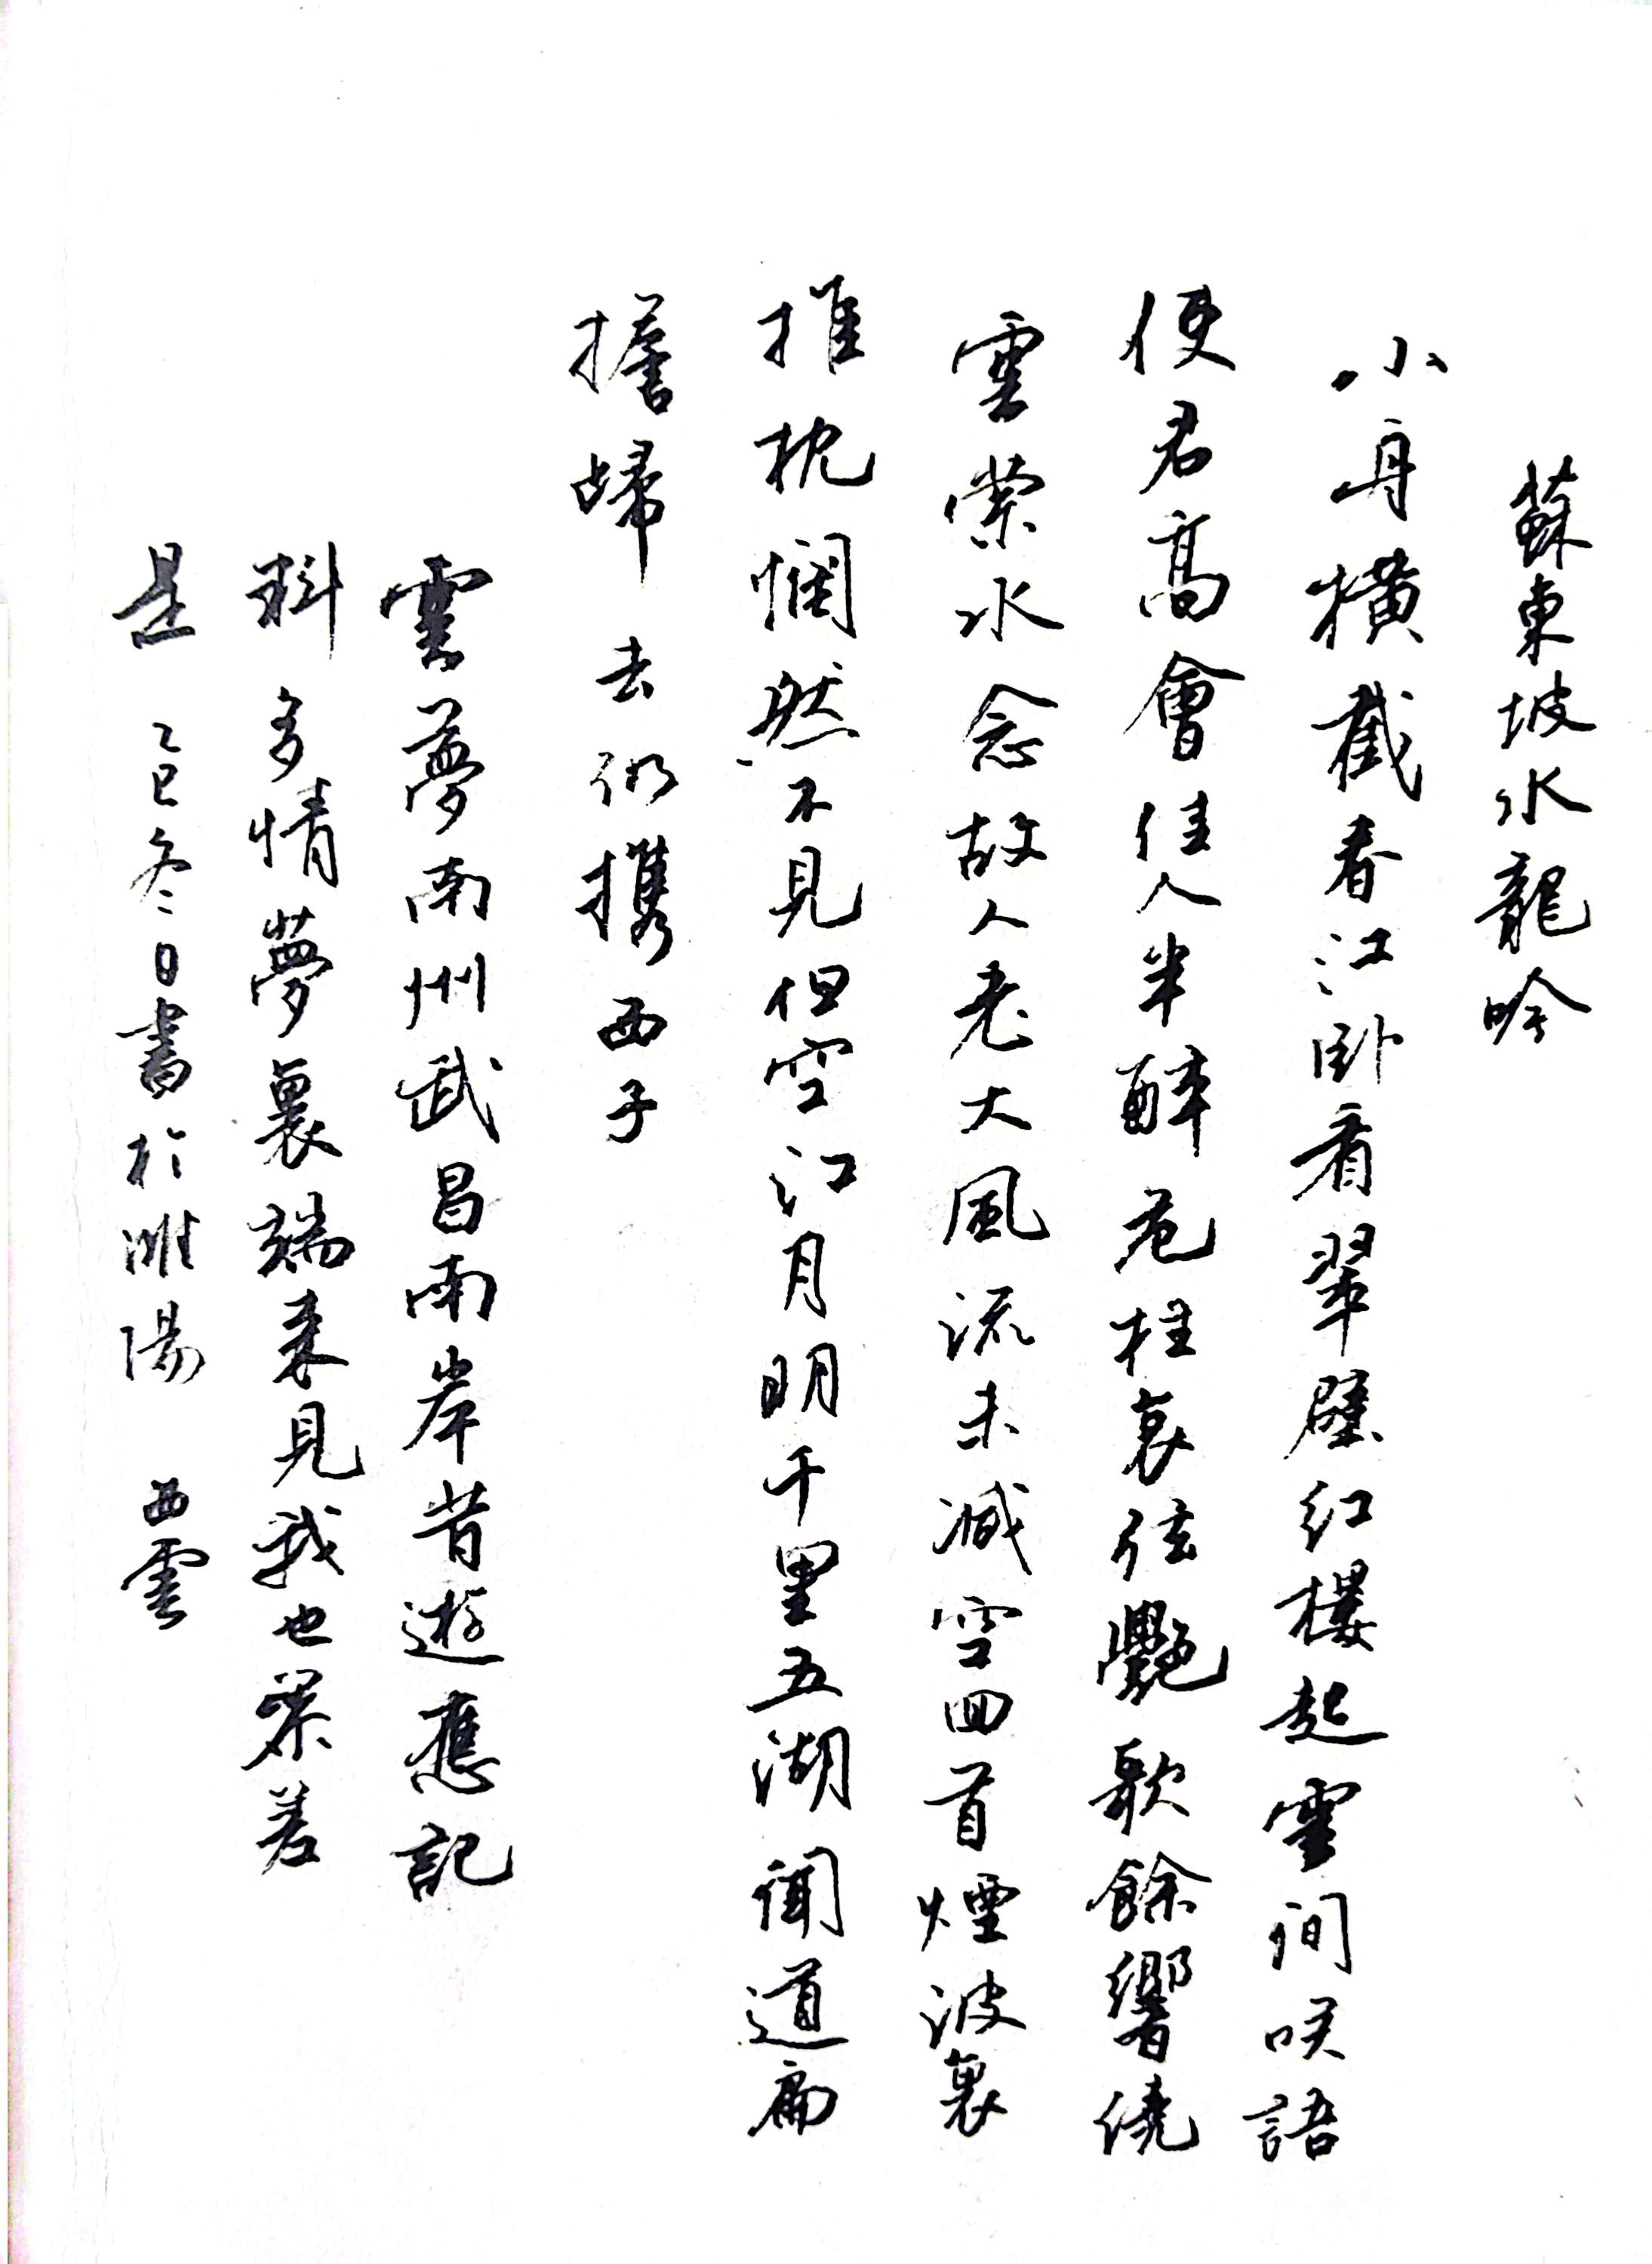 蘇東坡水龍吟
小舟橫截春江卧看翠壁红樓起雲间咲語
使君高會佳人半醉危柱哀弦艷歌餘響繞
雲縈水念故人老大風流未减空回首煙波裏
推枕惘然不見但空江月明千里五湖闻道扁
擔歸去仍携西子
雲夢南州武昌南岸昔遊應記
料多情夢裏端来見我也參差
是 乙巳冬日書於睢陽 西雲